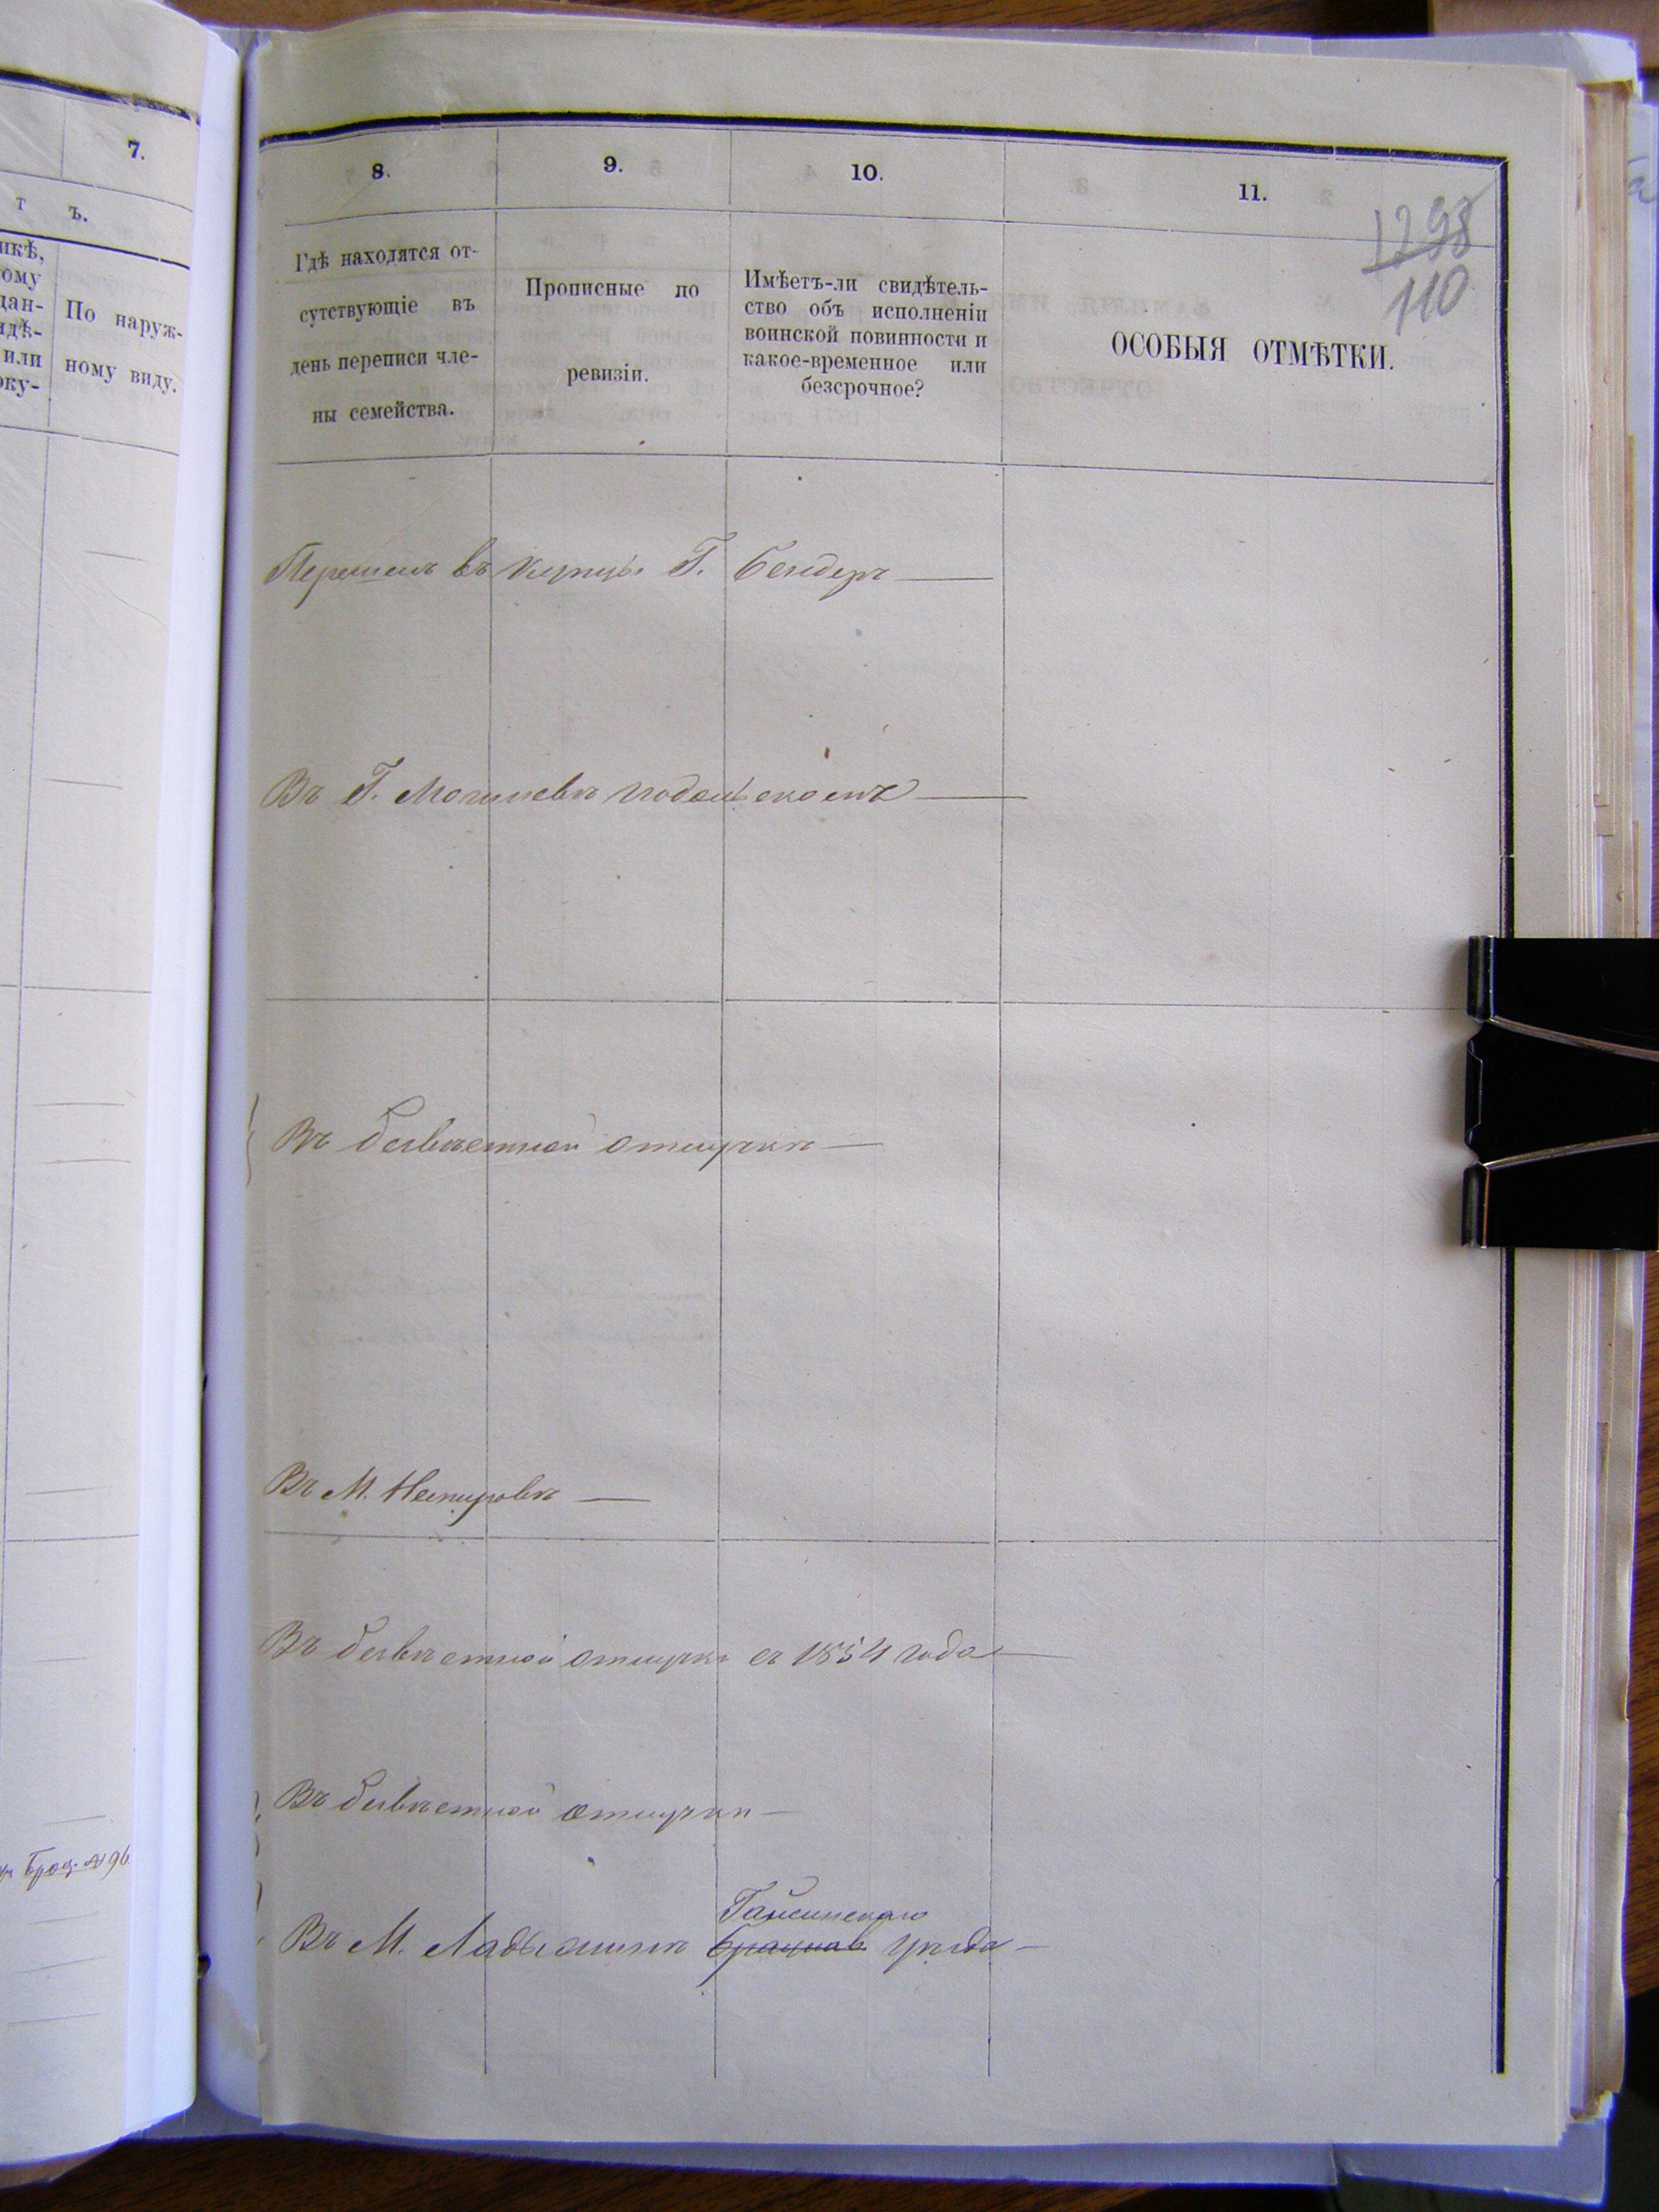 7.
т ъ.
икѣ,
ому
дан-
идѣ-
или
оку-
По наруж-
ному виду.
Брац. № 96.
8.
9.
10.
11.
1298
110
Гдѣ находятся от-
сутствующіе въ
день переписи чле-
ны семейства.
Прописные по
ревизіи.
Имѣетъ-ли свидѣтель-
ство объ исполненіи
воинской повинности и
какое-временное или
безсрочное?
ОСОБЫЯ ОТМѢТКИ.
Перешелъ въ купцы Г. Бендеръ
Въ Г. Могилевѣ Подольскомъ
Въ безвѣстной отлучкѣ
Въ М. Немировѣ
Въ безвѣстной отлучкѣ съ 1854 года
Въ безвѣстной отлучкѣ
Гайсинскаго
Въ М. Ладыжинѣ Брацлав уѣзда